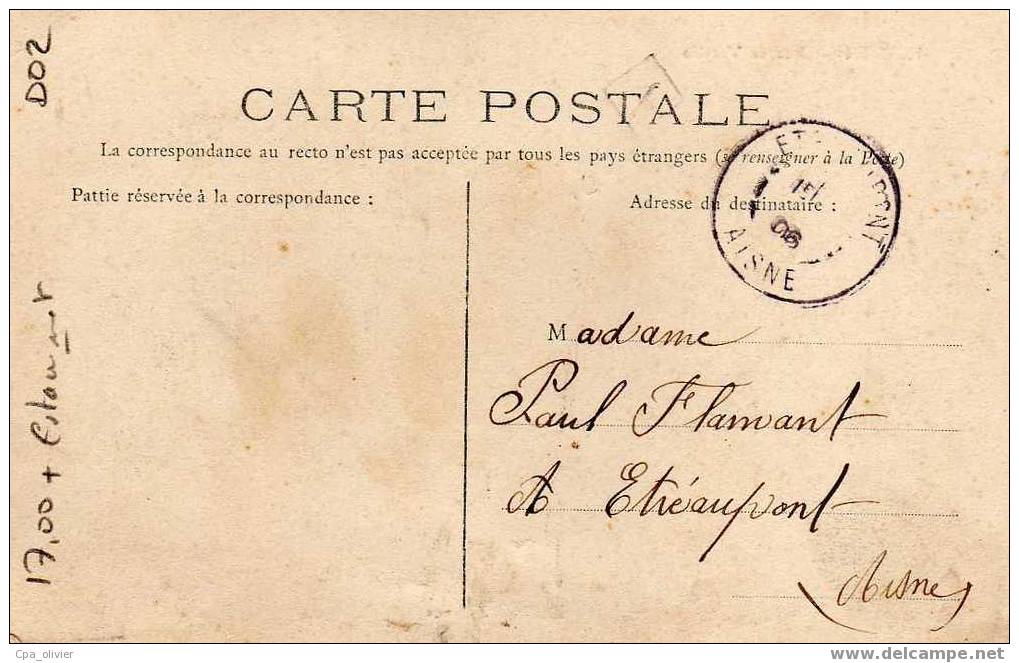 D02
CARTE POSTALE
La correspondance au recto n'est pas acceptée par tous les pays étrangers (se renseigner à la Poste)
Pattie réservée à la correspondance :
Adresse du destinataire :
AISNE
06
Madame
Paul Flamant
A Etréaupont
(Aisne)
17,00 + Estaminet
Cpa_olivier
www.delcampe.net